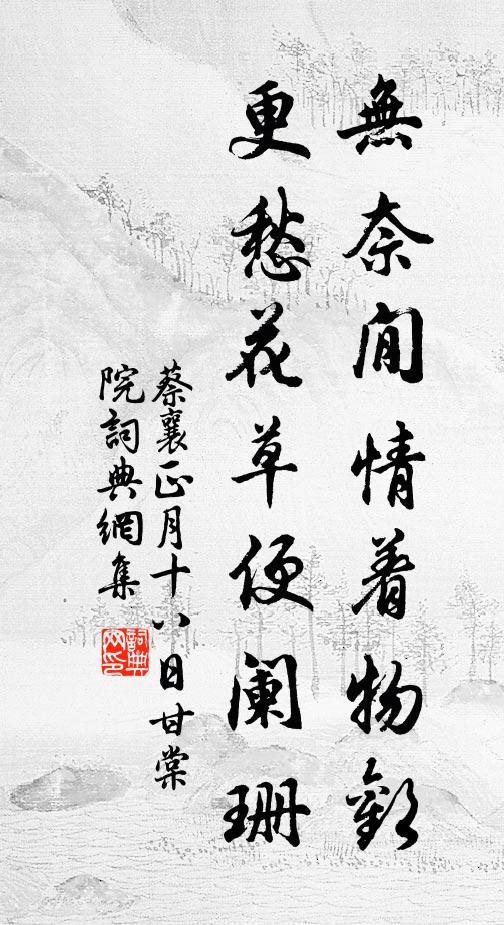 無奈閒情着物歡
更愁花草便闌珊
蔡襄正月十八日甘棠
院詞典網集
詞典
网印